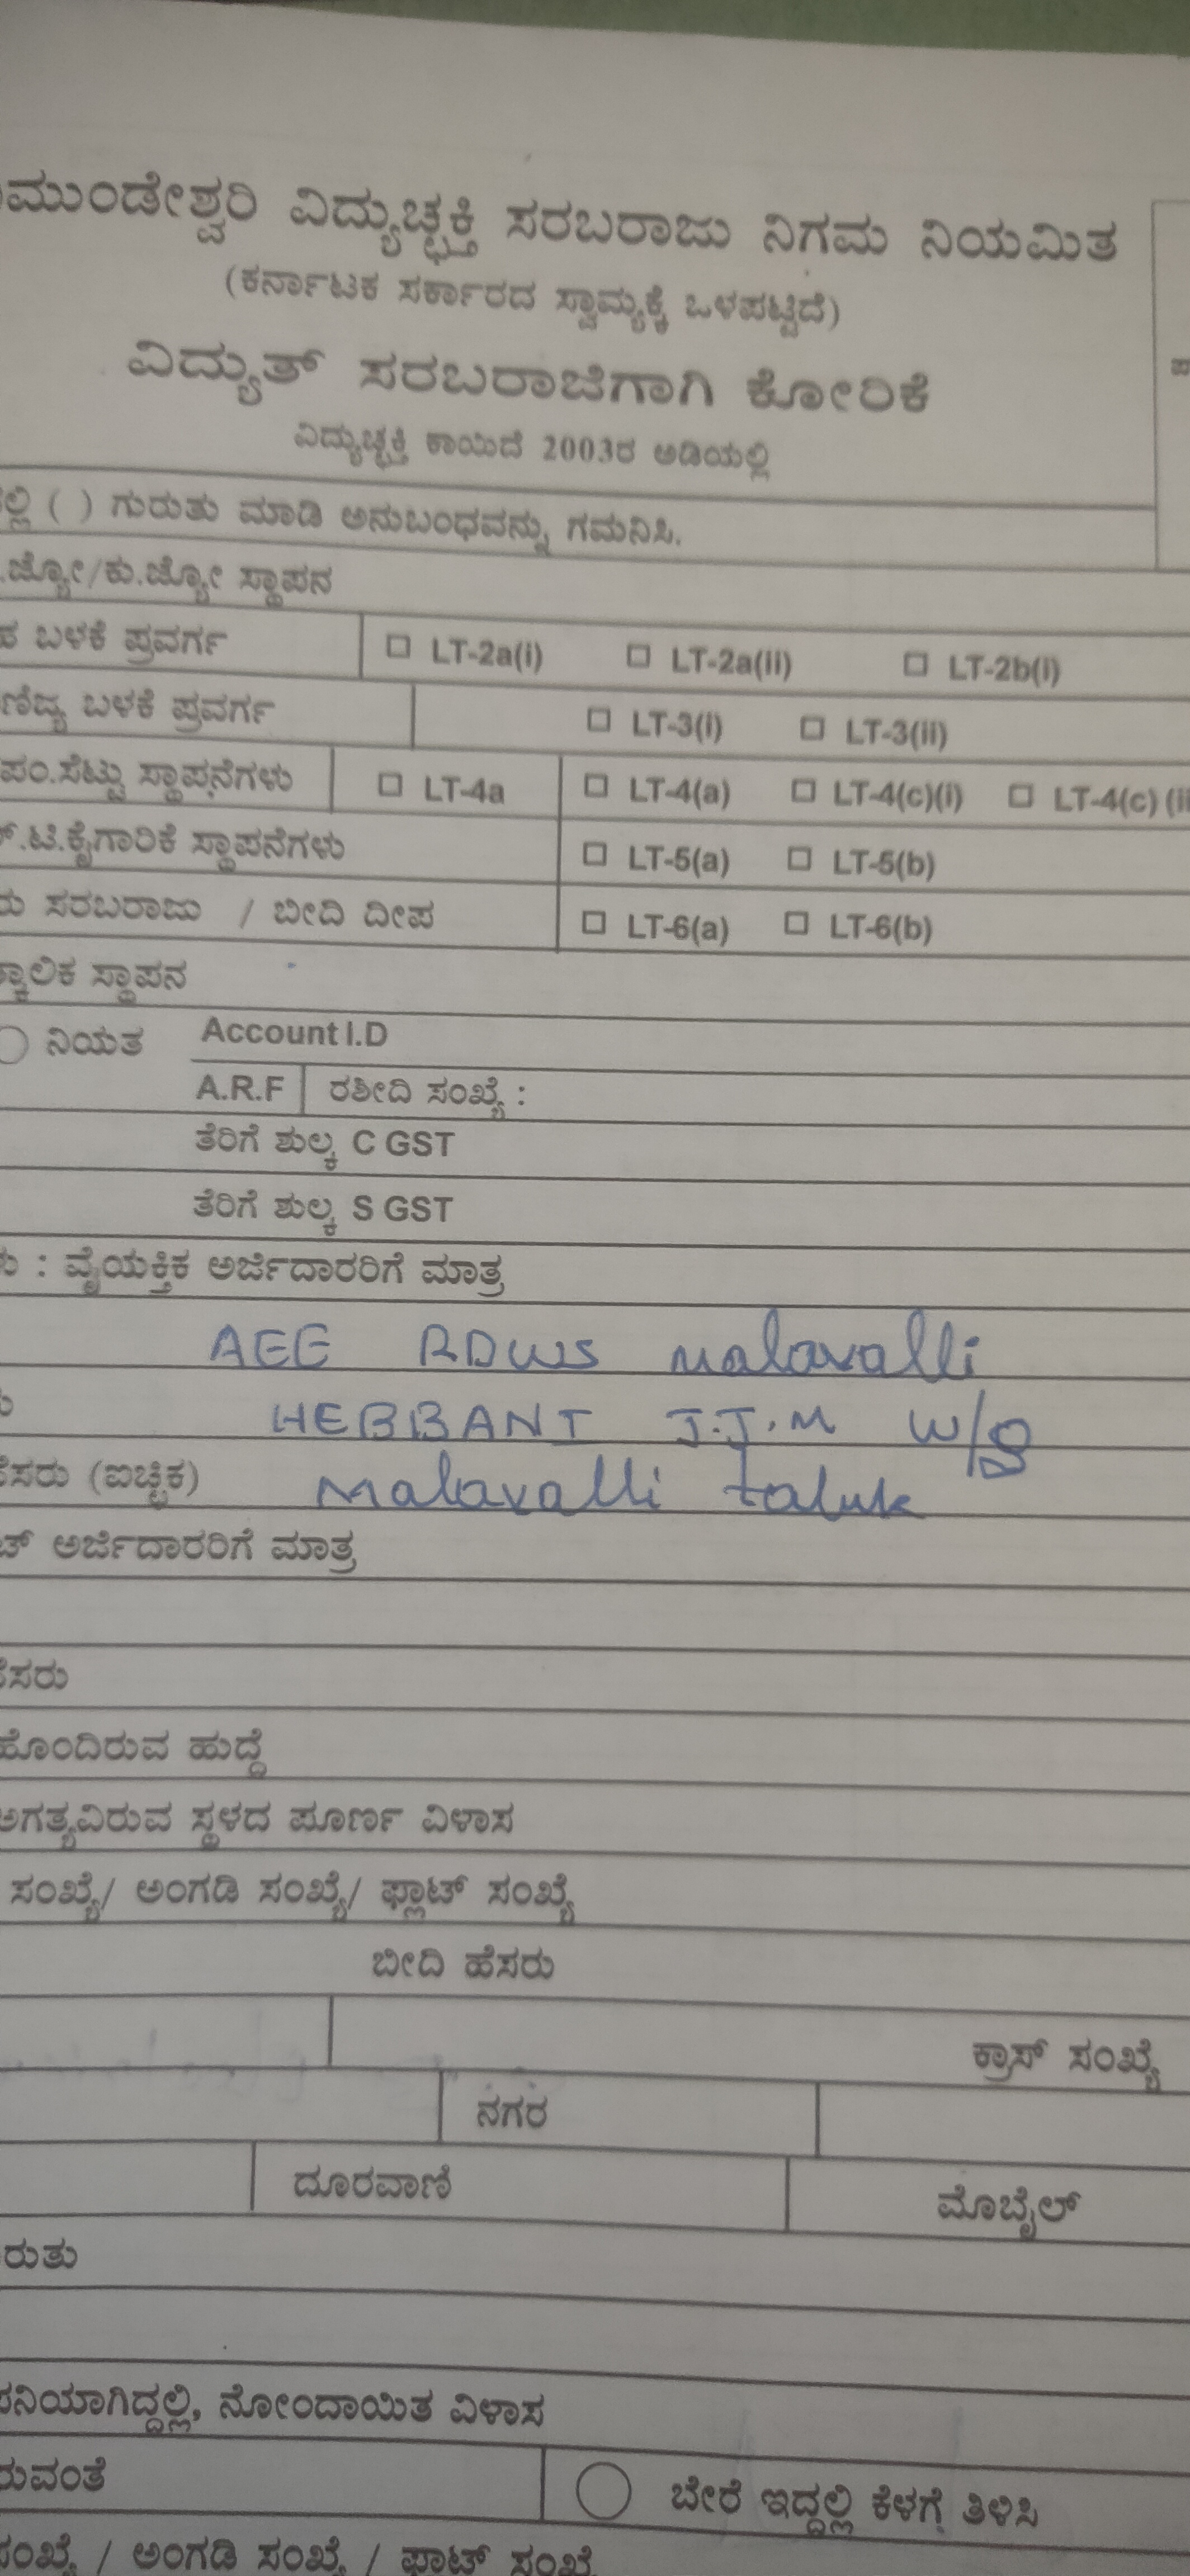 ಮುಂಡೇಶ್ವರಿ ವಿದ್ಯುಚ್ಛಕ್ತಿ ಸರಬರಾಜು ನಿಗಮ ನಿಯಮಿತ
(ಕರ್ನಾಟಕ ಸರ್ಕಾರದ ಸ್ವಾಮ್ಯಕ್ಕೆ ಒಳಪಟ್ಟಿದೆ)
ವಿದ್ಯುತ್ ಸರಬರಾಜಿಗಾಗಿ ಕೋರಿಕೆ
ವಿದ್ಯುಚ್ಛಕ್ತಿ ಕಾಯಿದೆ 2003ರ ಅಡಿಯಲ್ಲಿ
ಲ್ಲಿ ( ) ಗುರುತು ಮಾಡಿ ಅನುಬಂಧವನ್ನು ಗಮನಿಸಿ.
.ಜ್ಯೋ/ಕು.ಜ್ಯೋ ಸ್ಥಾಪನ
ಬಳಕೆ ಪ್ರವರ್ಗ LT-2a(i) LT-2a(ii) LT-2b(i)
ಣಿಜ್ಯ ಬಳಕೆ ಪ್ರವರ್ಗ LT-3(i) LT-3(ii)
ಪಂ.ಸೆಟ್ಟು ಸ್ಥಾಪನೆಗಳು LT-4a LT-4(a) LT-4(c)(i) LT-4(c) (ii
.ಟಿ.ಕೈಗಾರಿಕೆ ಸ್ಥಾಪನೆಗಳು LT-5(a) LT-5(b)
ರು ಸರಬರಾಜು / ಬೀದಿ ದೀಪ LT-6(a) LT-6(b)
ತ್ಕಾಲಿಕ ಸ್ಥಾಪನ
ನಿಯತ Account I.D
A.R.F ರಶೀದಿ ಸಂಖ್ಯೆ :
ತೆರಿಗೆ ಶುಲ್ಕ C GST
ತೆರಿಗೆ ಶುಲ್ಕ S GST
: ವೈಯಕ್ತಿಕ ಅರ್ಜಿದಾರರಿಗೆ ಮಾತ್ರ
AEE RDWS malavalli
HEBBANI J.J.M W/S
ಸರು (ಐಚ್ಛಿಕ) Malavalli taluk
ಅರ್ಜಿದಾರರಿಗೆ ಮಾತ್ರ
ಸರು
ಹೊಂದಿರುವ ಹುದ್ದೆ
ಅಗತ್ಯವಿರುವ ಸ್ಥಳದ ಪೂರ್ಣ ವಿಳಾಸ
ಸಂಖ್ಯೆ/ ಅಂಗಡಿ ಸಂಖ್ಯೆ/ ಫ್ಲಾಟ್ ಸಂಖ್ಯೆ
ಬೀದಿ ಹೆಸರು
ಕ್ರಾಸ್ ಸಂಖ್ಯೆ
ನಗರ
ದೂರವಾಣಿ ಮೊಬೈಲ್
ರುತು
ನಿಯಾಗಿದ್ದಲ್ಲಿ, ನೋಂದಾಯಿತ ವಿಳಾಸ
ರುವಂತೆ ಬೇರೆ ಇದ್ದಲ್ಲಿ ಕೆಳಗೆ ತಿಳಿಸಿ
ಸಂಖ್ಯೆ / ಅಂಗಡಿ ಸಂಖ್ಯೆ / ಫ್ಲಾಟ್ ಸಂಖ್ಯೆ